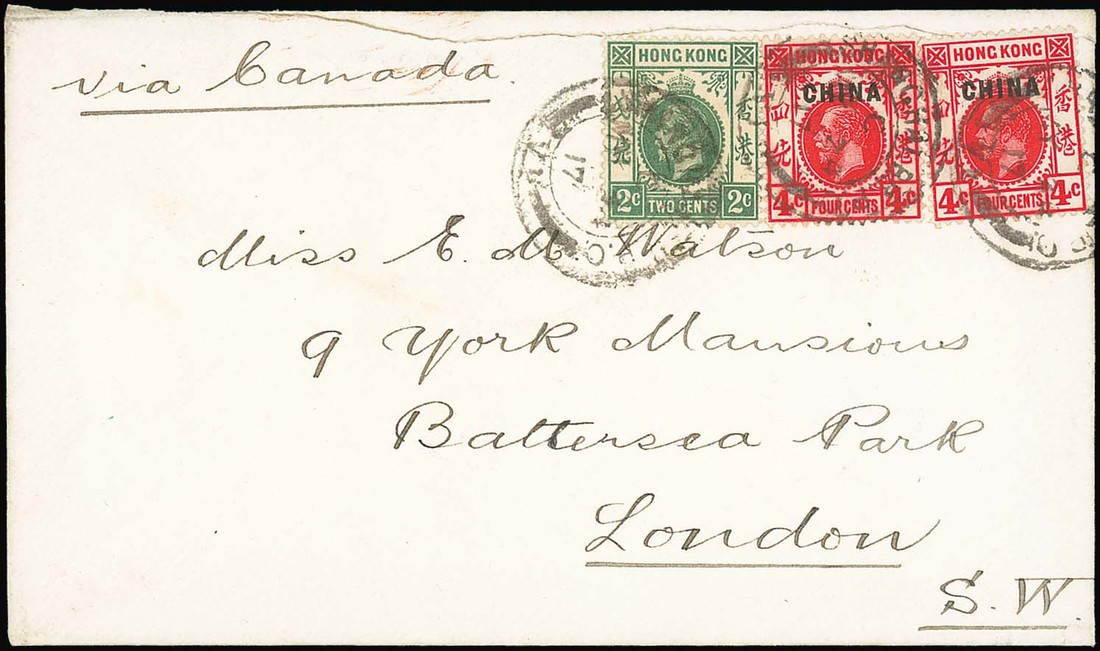 via Canada.
HONG KONG
香港
弍先
2C TWO CENTS 2C
HONG KONG
CHINA
四先
4C FOUR CENTS 4C
HONG KONG
CHINA
香港
4C FOUR CENTS 4C
17
Miss E. M. Watson
9 York Mansions
Battersea Park
London
S. W.